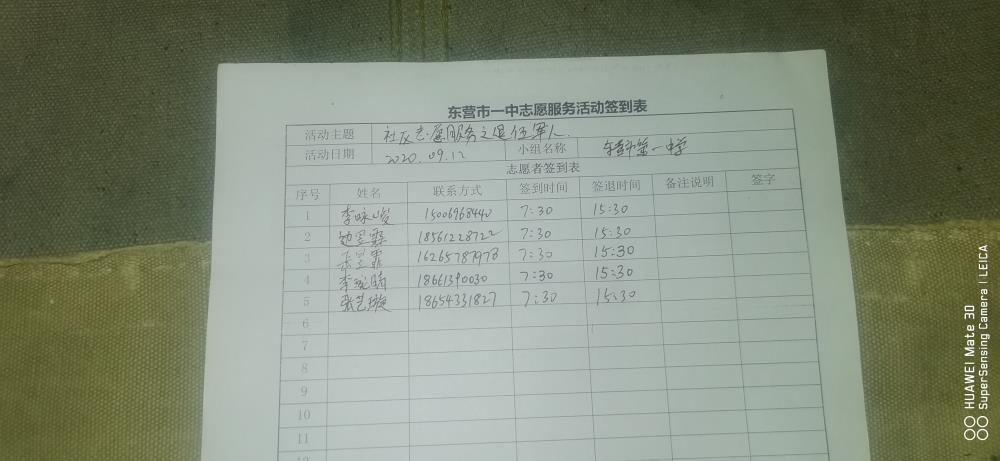 东营市一中志愿服务活动签到表
活动主题 社区志愿服务之退伍军人.
活动日期 2020.09.12 小组名称 第一中学
志愿者签到表
序号 姓名 联系方式 签到时间 签退时间 备注说明 签字
1 李咏峻 15006968440 7:30 15:30
2 昱霖 18561228722 7:30 15:30
3 昱霏 16265787978 7:30 15:30
4 李 18661390030 7:30 15:30
5 张艺璇 18654331827 7:30 15:30
6
7
8
9
10
11
HUAWEI Mate 30
SuperSensing Camera | LEICA